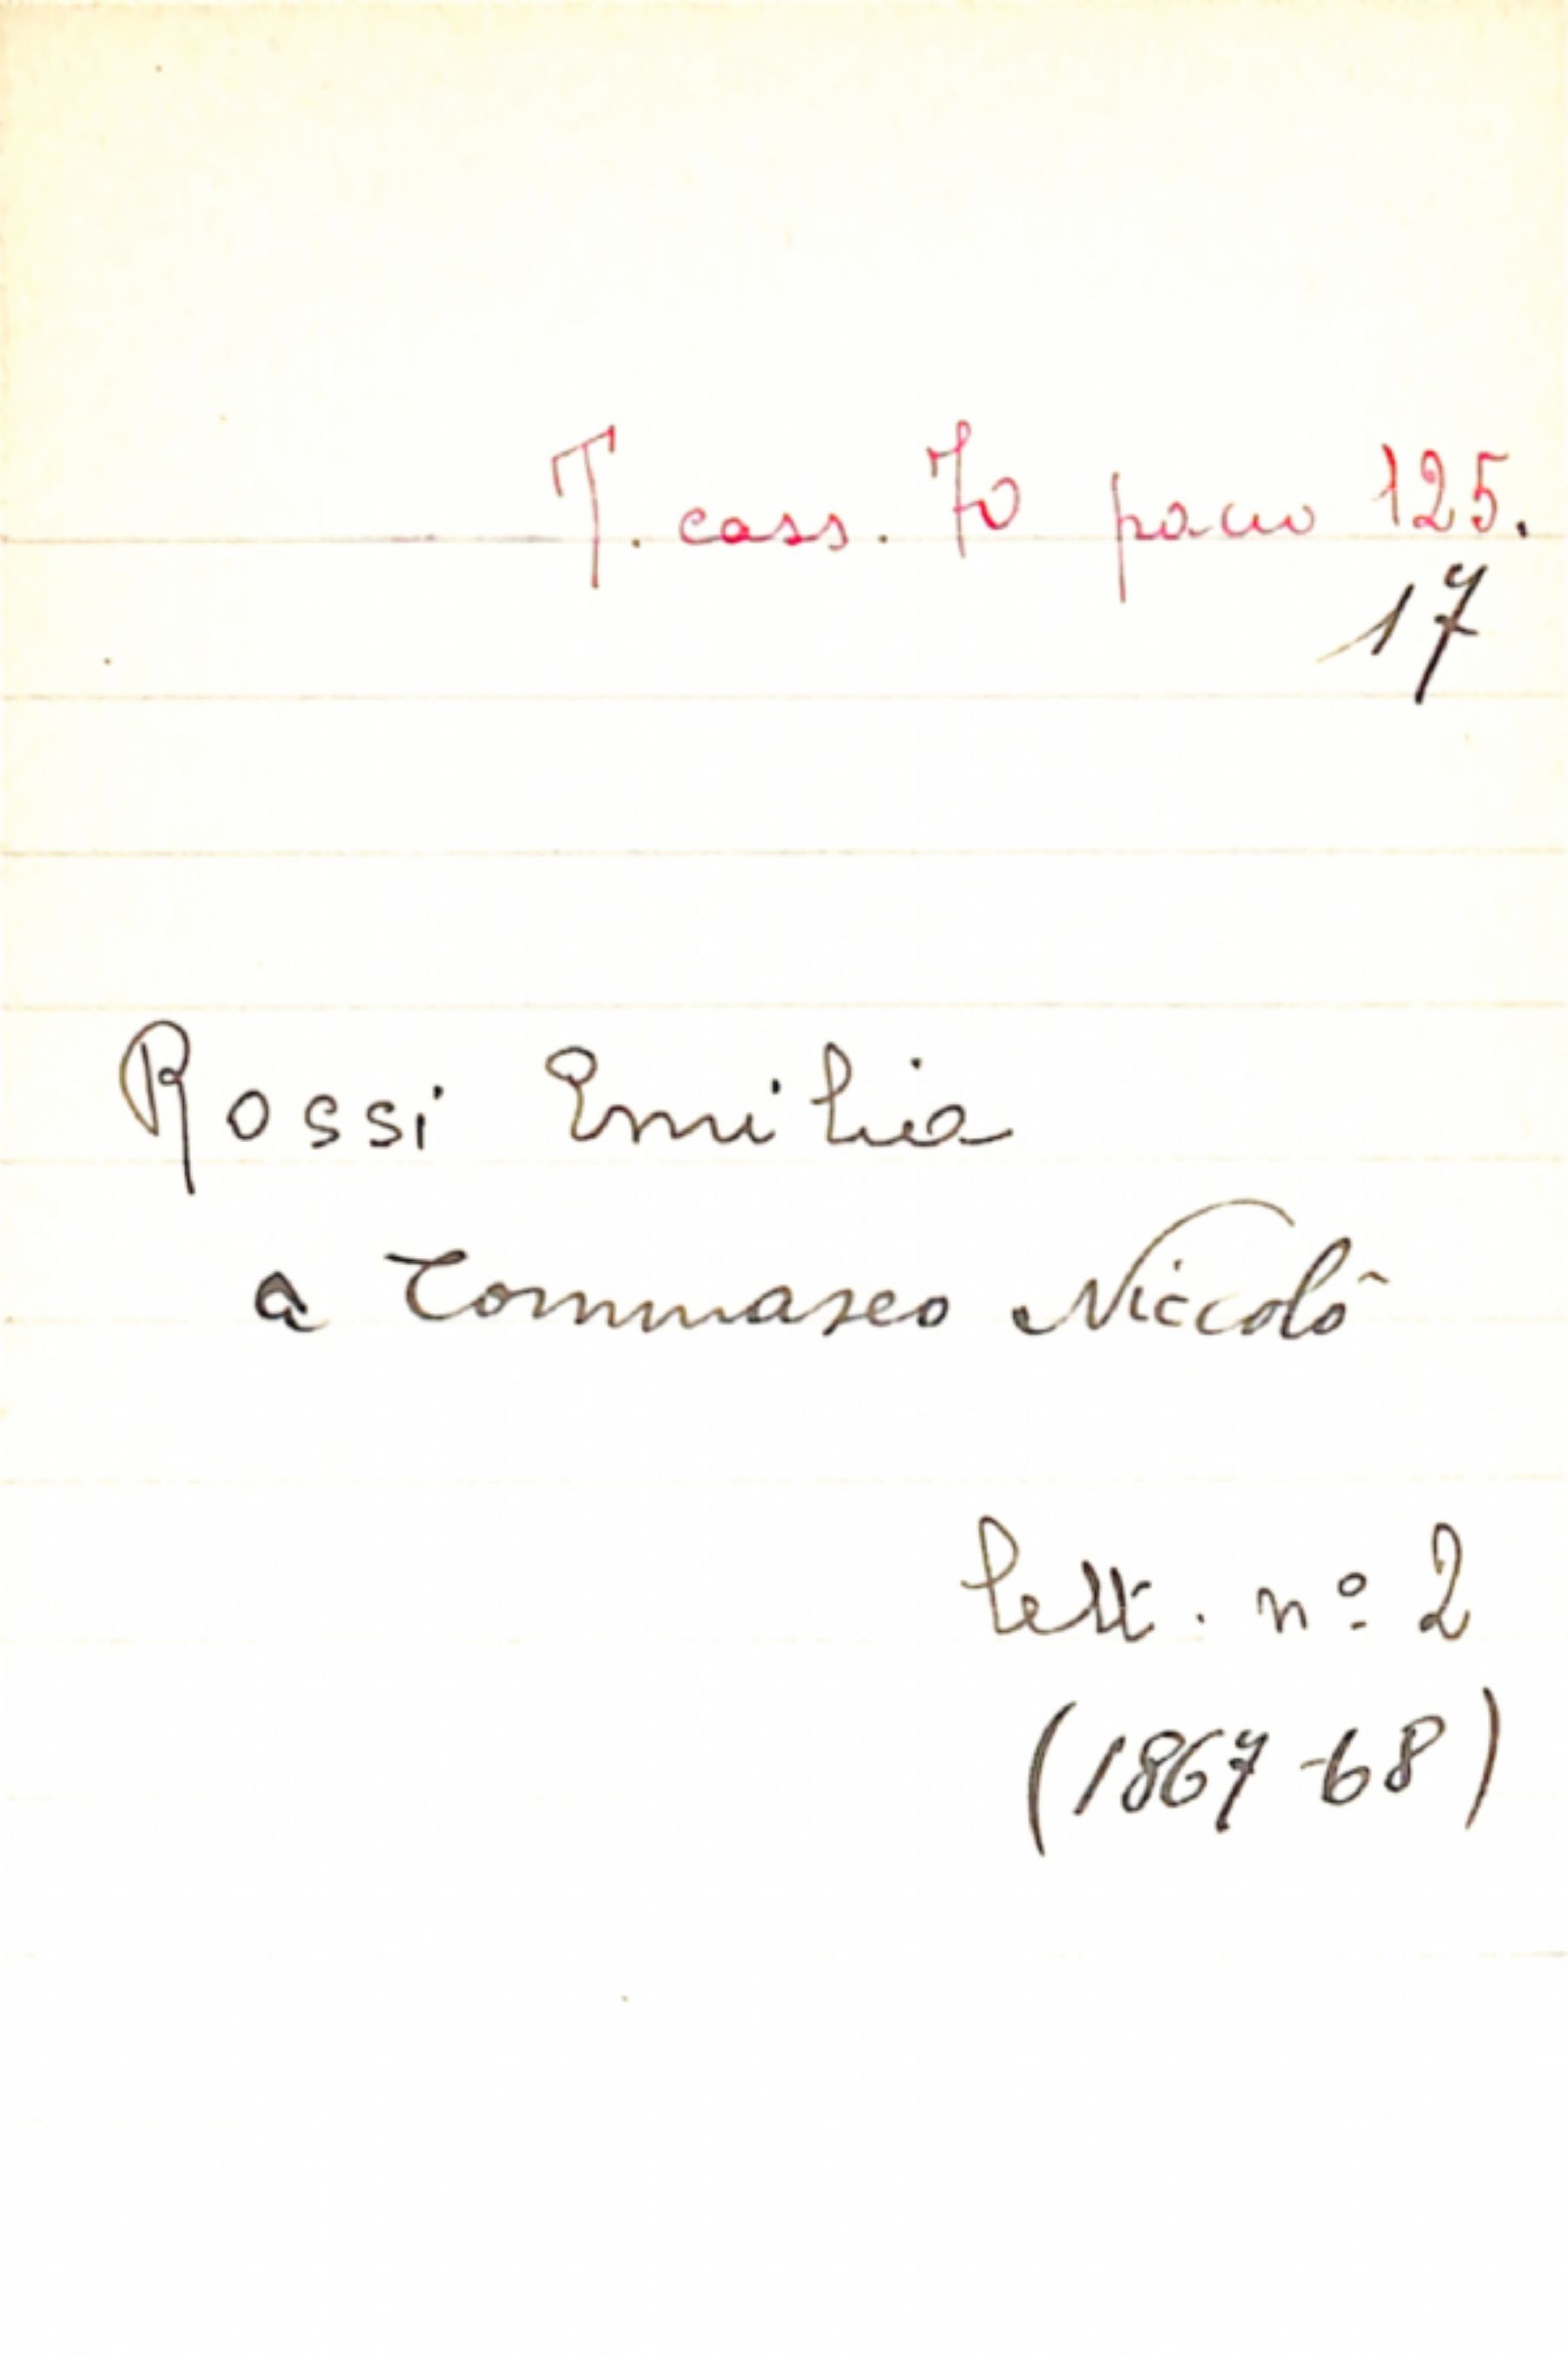 T. cass. 70 pacco 125.
17
Rossi Emilia
a Tommaseo Niccolò
lett. nº 2
(1867-68)